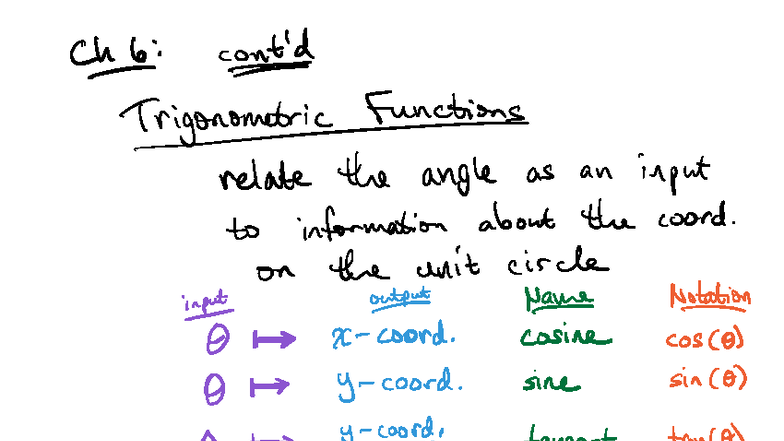 Ch 6: cont'd
Trigonometric Functions
relate the angle as an input
to information about the coord.
on the unit circle
input output Name Notation
θ ↦ x-coord. cosine cos(θ)
θ ↦ y-coord. sine sin(θ)
y-coord.